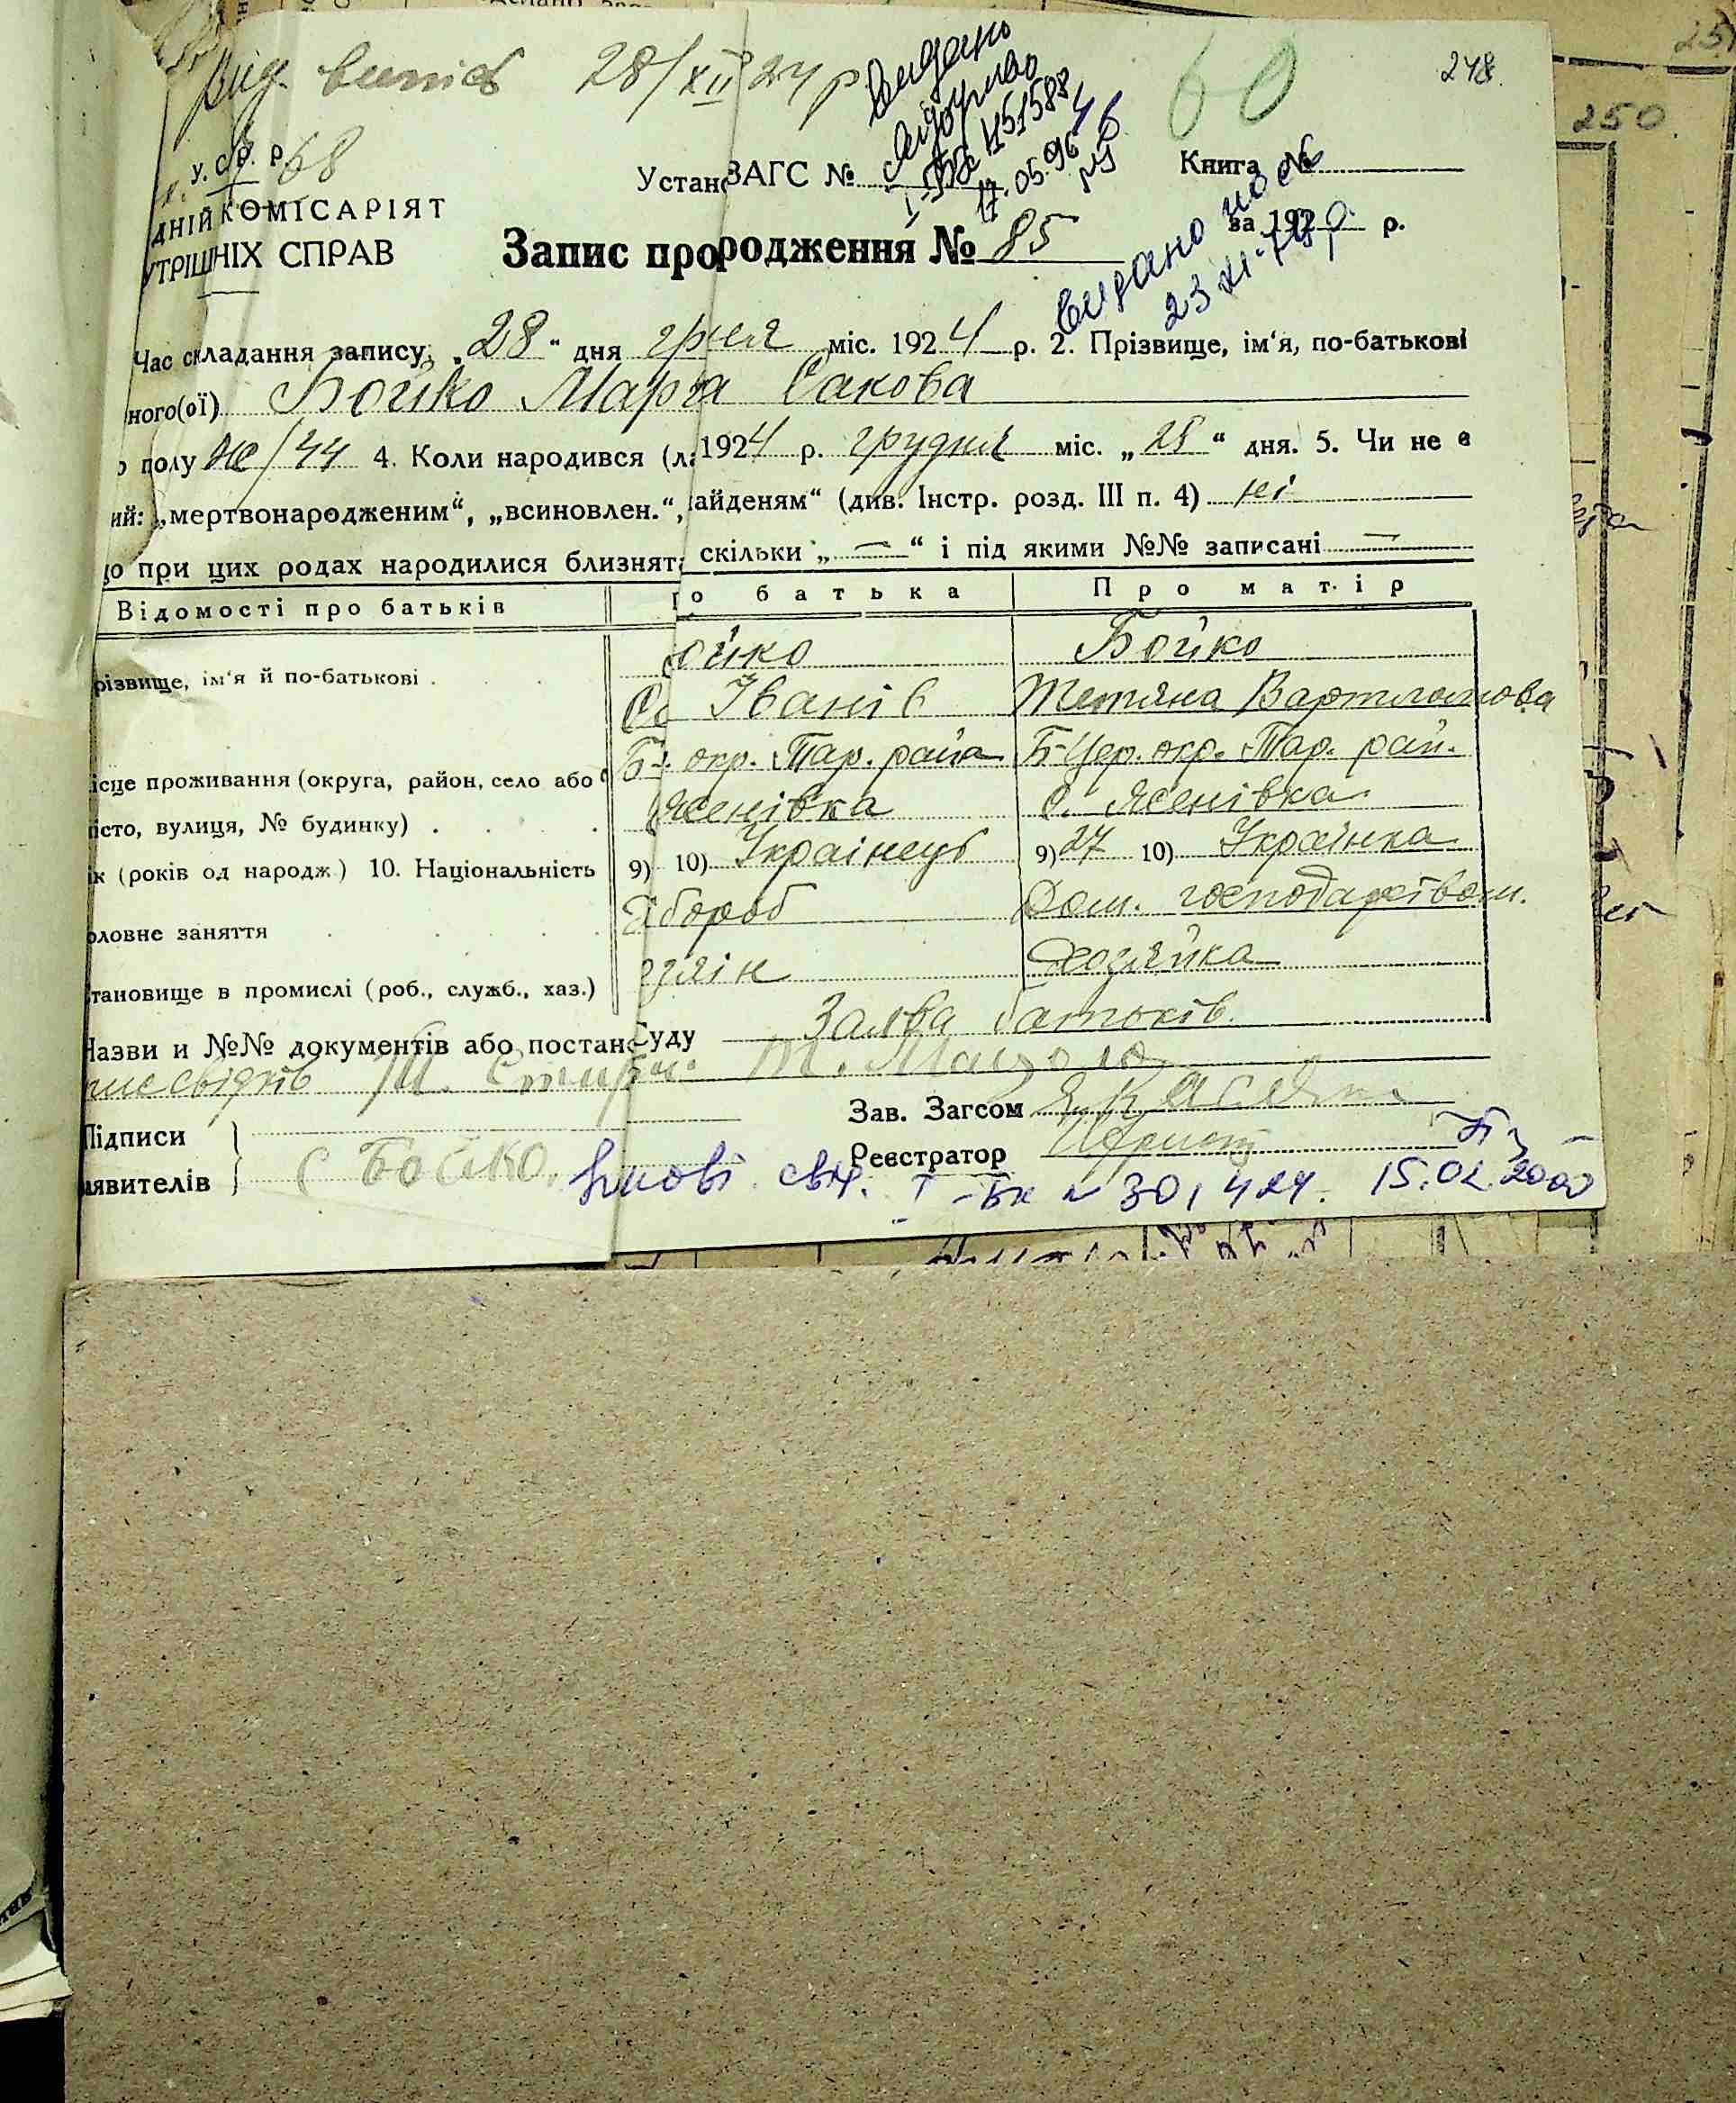 Вид. випис 28/XII 24 р.
Видано
І-БК 451588
17.05.96
60
248
250
У.С.Р.Р.
68
Устан ЗАГС №
Книга №
ДНІЙ КОМІСАРІЯТ
за 192 р.
УТРІШНІХ СПРАВ
Запис про родження № 85
Видано
23 XI
Час складання запису, „28“ дня грдня міс. 1924 р. 2. Прізвище, ім‘я, по-батькові
ного(ої) Бойко Марія Сакова
полу же/ 4. Коли народився (ла 1924 р. грудня міс. „28“ дня. 5. Чи не є
ий: „мертвонародженим“, „всиновлен.“, айденям“ (див. Інстр. розд. III п. 4) ні
що при цих родах народилися близнят скільки „—“ і під якими №№ записані —
Відомості про батьків
о батька
Про матір
різвище, ім‘я й по-батькові
ойко
Бойко
Са Іванів
Тетяна Вартоломова
ісце проживання (округа, район, село або
Б- окр. Тар. район
Б-Цер. окр. Тар. рай.
істо, вулиця, № будинку)
Ясенівка
с. Ясенівка
к (років од народж) 10. Національність
9) 10) Українець
9) 27 10) Українка
оловне заняття
бороб
Дом. господарством.
тановище в промислі (роб., служб., хаз.)
зяін
Хозяйка
Назви и №№ документів або постан Суду Заява батьків.
пис свідків
Зав. Загсом
Підписи
явителів
С Бойко.
Реєстратор
свід. І-БК № 301424. 15.02.2000